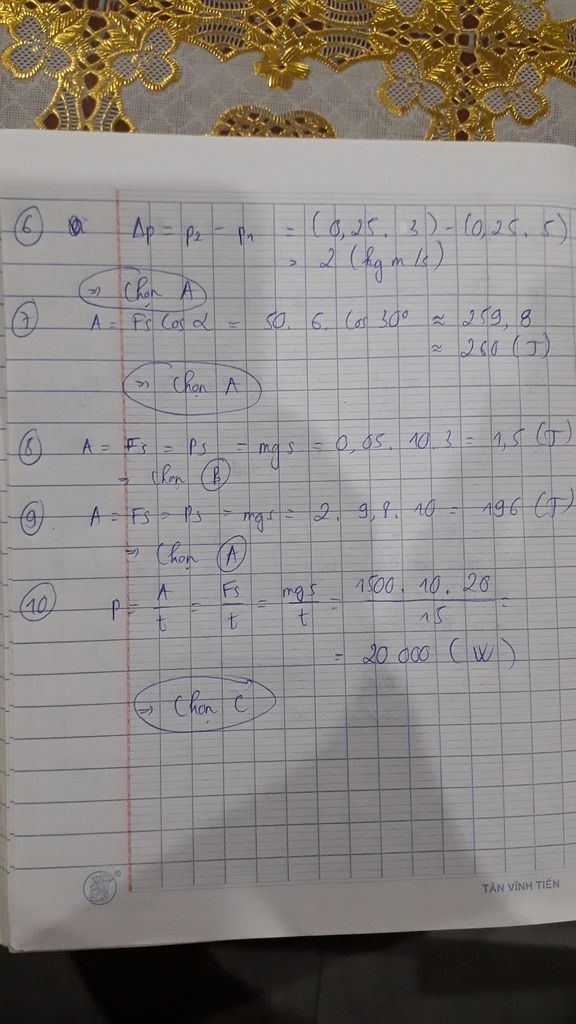 6 Δp = p₂ - p₁ = (0,25. 3) - (0,25. 5)
= 2 (kg m/s)
⇒ Chọn A
7 A = Fs Cos α = 50. 6. Cos 30° ≈ 259, 8
≈ 260 (J)
⇒ Chọn A
8 A = Fs = Ps = mgs = 0,05. 10. 3 = 1,5 (J)
⇒ Chọn B
9 A = Fs = Ps = mgs = 2. 9,8. 10 = 196 (J)
⇒ Chọn A
10 P = A/t = Fs/t = mgs/t = 1500. 10. 20/15 =
= 20 000 (W)
⇒ Chọn C
TÂN VĨNH TIẾN